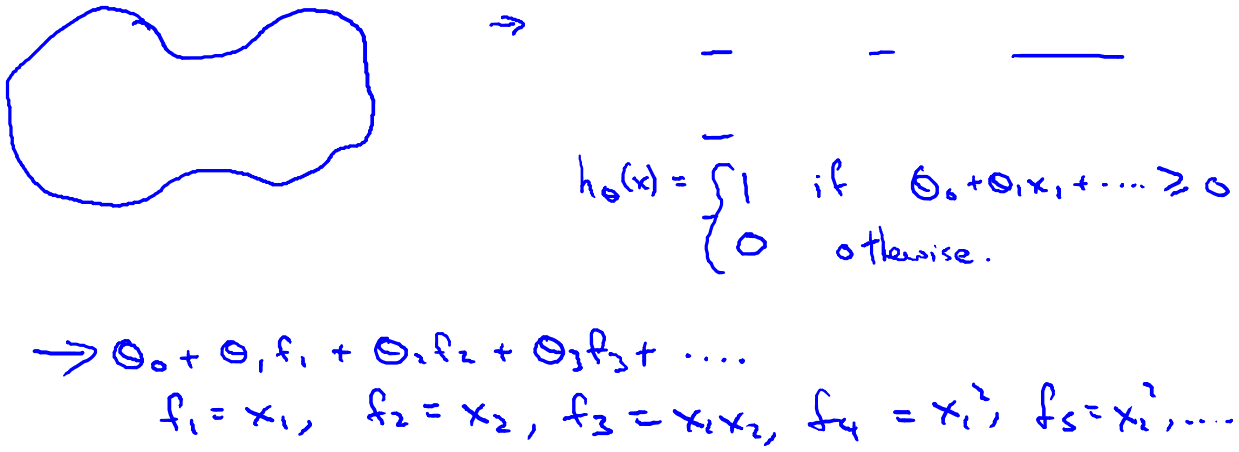 →
h_θ(x) = { 1 if θ₀ + θ₁x₁ + .... ≥ 0
0 otherwise.
→ θ₀ + θ₁f₁ + θ₂f₂ + θ₃f₃ + ....
f₁ = x₁, f₂ = x₂, f₃ = x₁x₂, f₄ = x₁², f₅ = x₂², ....